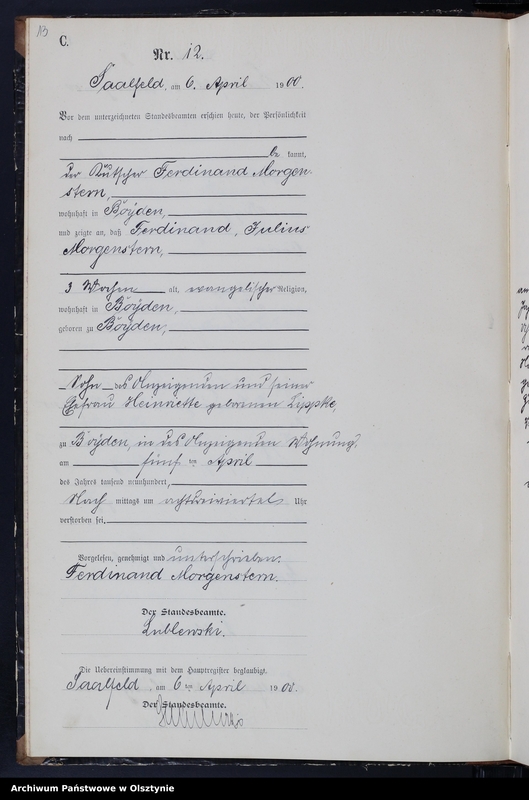 13
C.
Nr. 12.
Saalfeld, am 6. April 1900.
Vor dem unterzeichneten Standesbeamten erschien heute, der Persönlichkeit
nach
be kannt,
der Kutscher Ferdinand Morgen-
stern,
wohnhaft in Böyden,
und zeigte an, daß Ferdinand, Julius
Morgenstern,
3 Wochen alt, evangelischer Religion,
wohnhaft in Böyden,
geboren zu Böyden,
Sohn des Anzeigenden und seiner
Ehefrau Henriette geborenen Lippke,
zu Böyden, in des Anzeigenden Wohnung,
am fünf ten April
des Jahres tausend neunhundert,
Nach mittags um achtdreiviertel Uhr
verstorben sei.
Vorgelesen, genehmigt und unterschrieben.
Ferdinand Morgenstern.
Der Standesbeamte.
Lublewski.
Die Uebereinstimmung mit dem Hauptregister beglaubigt.
Saalfeld, am 6 ten April 1900.
Der Standesbeamte.
Archiwum Państwowe w Olsztynie